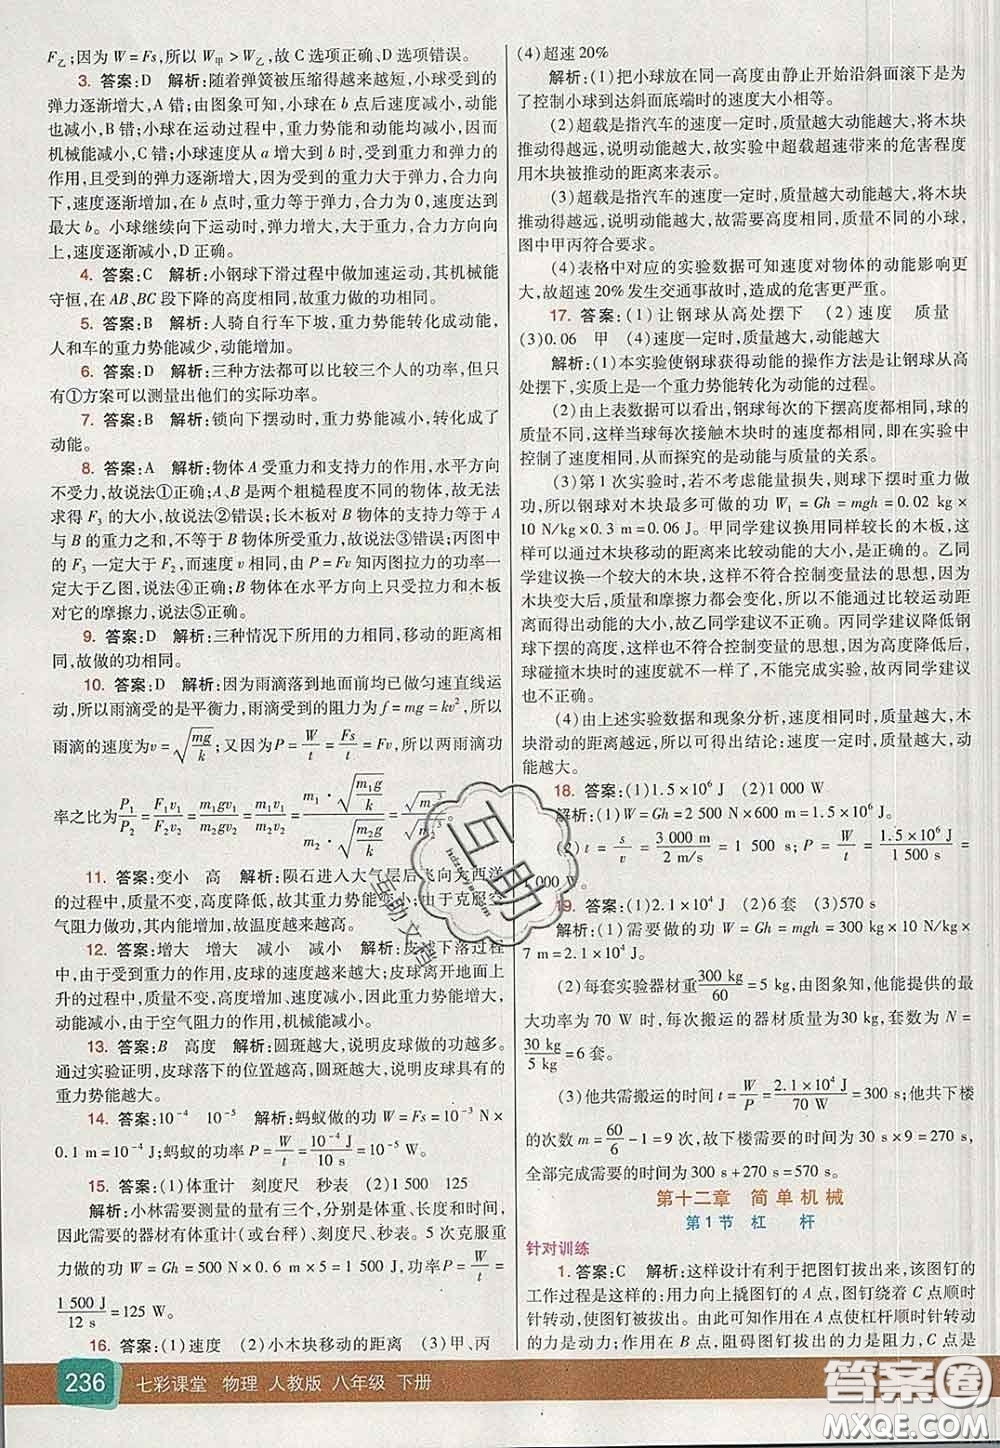 F乙;因为 W = Fs,所以 W甲 > W乙,故 C 选项正确、D 选项错误。
3. 答案:D 解析:随着弹簧被压缩得越来越短,小球受到的
弹力逐渐增大,A 错;由图象可知,小球在 b 点后速度减小,动能
也减小,B 错;小球在运动过程中,重力势能和动能均减小,因而
机械能减小,C 错;小球速度从 a 增大到 b 时,受到重力和弹力的
作用,且受到的弹力逐渐增大,因为受到的重力大于弹力,合力向
下,速度逐渐增加,在 b 点时,受到的重力等于弹力,此时速度最
大 b。小球继续向下运动时,弹力增大,弹力大于重力,合力方向向
上,速度逐渐减小,D 正确。
4. 答案:C 解析:小钢球下滑过程中做加速运动,其机械能
守恒,在 AB、BC 段下降的高度相同,故重力做的功相同。
5. 答案:B 解析:人骑自行车下坡,重力势能转化成动能,
人和车的重力势能减少,动能增加。
6. 答案:D 解析:三种方法都可以比较三个人的功率,但
只有①方案可以测量出他们的实际功率。
7. 答案:B 解析:锁向下摆动时,重力势能减小,转化成了
动能。
8. 答案:A 解析:物体 A 受重力和支持力的作用,水平方向
不受力,故说法①正确;A、B 是两个粗糙程度不同的物体,故无法
求得 F3 的大小,故说法②错误;长木板对 B 物体的支持力等于 A
与 B 的重力之和,不等于 B 物体受到的重力,故说法③错误;丙图中
的 F3 一定大于 F2,而速度 v 相同,由 P = Fv 知丙图拉力的功率一
定大于乙图,说法④正确;B 物体在水平方向上只受拉力和木板
对它的摩擦力,故说法⑤正确。
9. 答案:D 解析:三种情况下所用的力相同,移动的距离相
同,故做的功相同。
10. 答案:D 解析:因为雨滴落到地面前均已做匀速直线运
动,所以雨滴受的是平衡力,雨滴受到的阻力为 f = mg = kv²,所以
雨滴的速度为 v = √(mg/k);又因为 P = W/t = Fs/t = Fv,所以两雨滴功
率之比为 P1/P2 = F1v1/F2v2 = m1gv1/m2gv2 = m1v1/m2v2 = (m1·√(m1g/k))/(m2·√(m2g/k)) =
11. 答案:变小 高 解析:陨石进入大气层后飞向大西洋
时,质量不变,高度降低,故其重力势能变小,
气阻力做功,内能增加,故温度越来越高。
12. 答案:增大 增大 减小 减小 解析:皮球下落过程
中,由于受到重力的作用,皮球的速度越来越大;皮球离开地面上
升的过程中,质量不变,高度增大,因此重力势能增大,
动能减小,由于空气阻力的作用,机械能减小。
13. 答案:B 高度 解析:圆斑越大,说明皮球做的功越多。
通过实验证明,皮球下落的位置越高,圆斑越大,说明皮球的重力
势能越大。
14. 答案:10⁻⁴ 10⁻⁵ 解析:蚂蚁做的功 W = Fs = 10⁻³ N ×
0.1 m = 10⁻⁴ J;蚂蚁的功率 P = W/t = 10⁻⁴ J/10 s = 10⁻⁵ W。
15. 答案:(1)体重计 刻度尺 秒表 (2)1 500 125
解析:小林需要测量的量有三个,分别是体重、高度和时间,
对应的器材有体重计(或台秤)、刻度尺、秒表。5 次克服重
力做功 W = Gh = 500 N × 0.6 m × 5 = 1 500 J,功率 P = W/t =
1 500 J/12 s = 125 W。
16. 答案:(1)速度 (2)小木块移动的距离 (3)甲、丙
(4)超速 20%
解析:(1)把小球放在同一高度由静止开始沿斜面滚下是为
了控制小球到达斜面底端时的速度大小相等。
(2)超载是指汽车的速度一定时,质量越大动能越大,将木块
推动得越远,说明动能越大。故实验中超载超速带来的危害程度
用木块被推动的距离来表示。
(3)超载是指汽车的速度一定时,质量越大动能越大,将木块
推动得越远,说明动能越大,故需要高度相同、质量不同的小球,
图中甲丙符合要求。
(4)表格中对应的实验数据可知速度对物体的动能影响更
大,故超速 20% 发生交通事故时,造成的危害更严重。
17. 答案:(1)让钢球从高处摆下 (2)速度 质量
(3)0.06 甲 (4)速度一定时,质量越大,动能越大
解析:(1)本实验使钢球获得动能的操作方法是让钢球从高
处摆下,实质上是一个重力势能转化为动能的过程。
(2)由上表数据可以看出,钢球每次的下摆高度都相同,球的
质量不同,这样当球每次接触木块时的速度都相同,即在实验中
控制了速度相同,从而探究的是动能与质量的关系。
(3)第 1 次实验时,若不考虑能量损失,则球下摆时重力做
功,所以钢球对木块最多可做的功 W1 = Gh = mgh = 0.02 kg ×
10 N/kg × 0.3 m = 0.06 J。甲同学建议换用同样较长的木板,故
可以通过木块移动的距离来比较动能的大小,是正确的。乙同
学建议换一个较大的木块,这样不符合控制变量法的思想,因为
木块变大后,质量和摩擦力都会变化,故无法通过比较运动
距离而得出动能的大小,故乙同学建议不正确。丙同学建议降低钢
球下摆的高度,这样也不符合控制变量的思想,高度降低后,小
球碰撞木块时的速度就减小,不能完成实验,故丙同学建议
也不正确。
(4)由上述实验数据和现象分析,速度相同时,质量越大,木
块滑动的距离越远,所以可得出结论:速度一定时,质量越大,
动能越大。
18. 答案:(1)1.5×10⁶ J (2)1 000 W
解析:(1)W = Gh = 2 500 N×600 m = 1.5×10⁶ J。
(2)t = s/v = 3 000 m/2 m/s = 1 500 s;P = W/t = 1.5×10⁶ J/1 500 s =
1 000 W。
19. 答案:(1)2.1×10⁴ J (2)6套 (3)570 s
解析:(1)需要做的功 W = Gh = mgh = 300 kg × 10 N/kg ×
7 m = 2.1×10⁴ J。
(2)每套实验器材重 300 kg/60 = 5 kg,由图象知,他能提供的最
大功率为 70 W 时,每次搬运的器材质量为30 kg,故套数 N =
30 kg/5 kg = 6 套。
(3)他共需搬运的时间 t = W/P = 2.1×10⁴ J/70 W = 300 s;他共下楼
的次数 m = 60/6 - 1 = 9 次,故下楼需要的时间为 30 s×9 = 270 s,
全部完成需要的时间为 300 s+270 s = 570 s。
第十二章 简单机械
第1节 杠 杆
针对训练
1. 答案:C 解析:这样设计有利于把图钉拔出来,该图钉的
工作过程是:用力向上撬图钉的 A 点,图钉绕着 C 点顺时
针转动,使图钉被拔出。由此可知作用在 A 点使杠杆顺时针转动的
力为动力;作用在 B 点、阻碍图钉拔出的力是阻力,C 点是
236
七彩课堂 物理 人教版 八年级 下册
互助
互助文档
答案圈
MXQE.COM